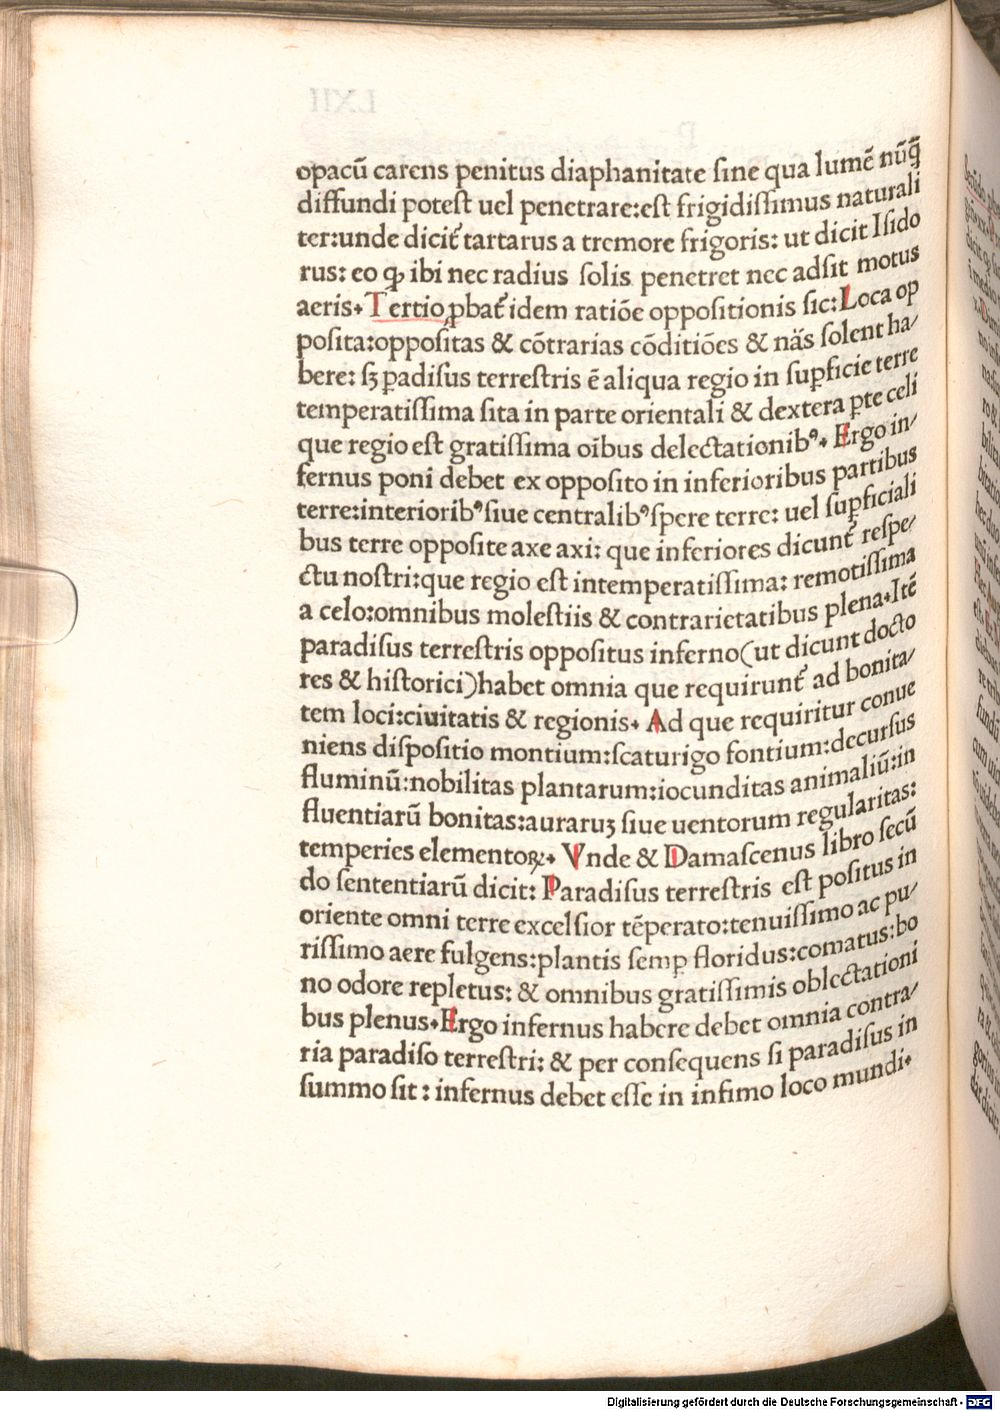 opacū carens penitus diaphanitate ſine qua lumē nūq̄
diffundi poteſt uel penetrare:eſt frigidiſſimus naturali
ter:unde dicit᷑ tartarus a tremore frigoris: ut dicit Iſido
rus: eo ꝙ ibi nec radius ſolis penetret nec adſit motus
aeris. Tertio ꝓbat᷑ idem ratiōe oppoſitionis ſic: Loca op
poſita:oppoſitas & cōtrarias cōditiōes & nās ſolent ha/
bere: ſꝫ ꝑadiſus terreſtris ē aliqua regio in ſuꝑficie terre
temperatiſſima ſita in parte orientali & dextera ꝑte celi
que regio eſt gratiſſima oībus delectationibꝰ. Ergo in/
fernus poni debet ex oppoſito in inferioribus partibus
terre:interioribꝰ ſiue centralibꝰ ſpere terre: uel ſuꝑficiali
bus terre oppoſite axe axi: que inferiores dicunt᷑ reſpe/
ctu noſtri:que regio eſt intemperatiſſima: remotiſſima
a celo:omnibus moleſtiis & contrarietatibus plena. Itē
paradiſus terreſtris oppoſitus inferno(ut dicunt docto
res & hiſtorici)habet omnia que requirunt᷑ ad bonita/
tem loci:ciuitatis & regionis. Ad que requiritur conue
niens diſpoſitio montium:ſcaturigo fontium:decurſus
fluminū:nobilitas plantarum:iocunditas animaliū:in
fluentiarū bonitas:auraruꝫ ſiue uentorum regularitas:
temperies elementoꝝ. Vnde & Damaſcenus libro ſecū
do ſententiarū dicit: Paradiſus terreſtris eſt poſitus in
oriente omni terre excelſior tēperato:tenuiſſimo ac pu/
riſſimo aere fulgens:plantis ſemꝑ floridus:comatus:bo
no odore repletus: & omnibus gratiſſimis oblectationi
bus plenus. Ergo infernus habere debet omnia contra/
ria paradiſo terreſtri: & per conſequens ſi paradiſus in
ſummo ſit: infernus debet eſſe in infimo loco mundi.
Digitalisierung gefördert durch die Deutsche Forschungsgemeinschaft - DFG